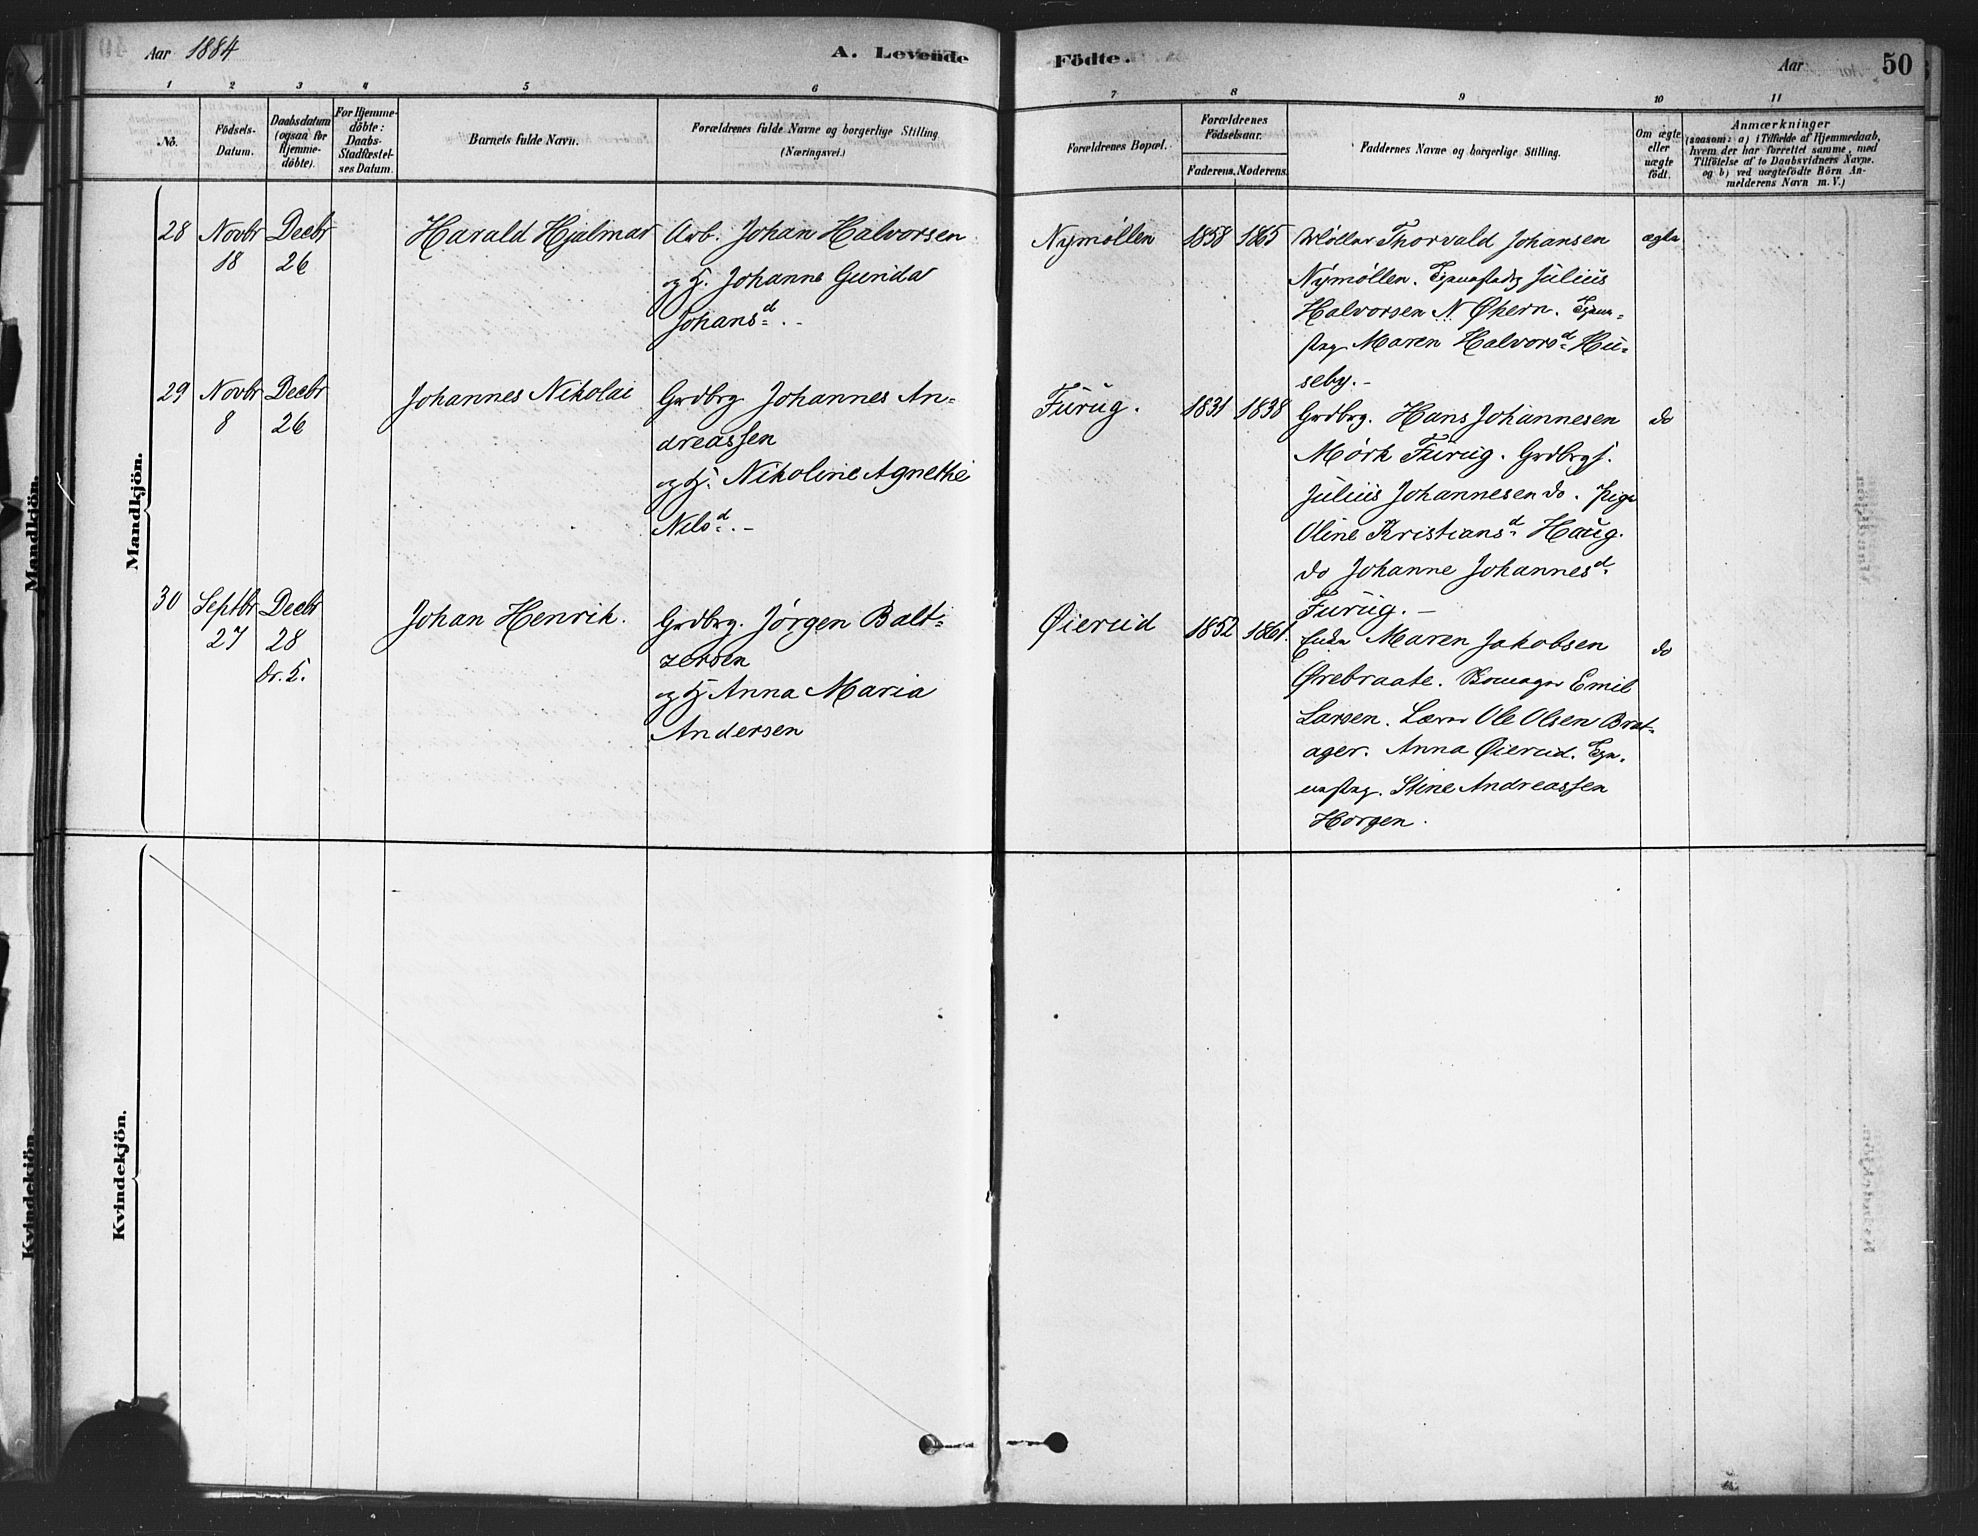 Aar 1884
A. Levende
Födte.
Aar
50
1
2
3
4
5
6
7
8
9
10
11
No.
Födsels-
Datum.
Daabsdatum
(ogsaa for
Hjemme-
döbte).
For Hjemme-
döbte:
Daabs-
Stadfæstel-
ses Datum.
Barnets fulde Navn.
Forældrenes fulde Navne og borgerlige Stilling.
(Næringsvei.)
Forældrenes Bopæl.
Forældrenes
Födselsaar.
Faderens. Moderens.
Faddernes Navne og borgerlige Stilling.
Om ægte
eller
uægte
födt.
Anmærkninger
(saasom: a) i Tilfælde af Hjemmedaab,
hvem der har forrettet samme, med
Tilföielse af to Daabsvidners Navne.
og b) ved uægtefödte Börn An-
melderens Navn m. V.)
Mandkjön.
28
Novbr
18
Decbr
26
Harald Hjalmar
Arb. Johan Halvorsen
og H. Johanne Gunida
Johansd. -
Nymøllen
1858
1865
Møller Thorvald Johansen
Nymøllen. Julius
Halvorsen N Øhern.
Maren Halvorsd Hu-
seby. -
ægte
29
Novbr
8
Decbr
26
Johannes Nikolai
Grdbrg Johannes An-
dreassen
og H. Nikoline Agnethe
Nilsd. -
Furug.
1831
1838
Grdbrg. Hans Johannesen
Mørk Furug. Grdbrgs.
Julius Johannesen do. Pige
Oline Kristiansd Haug.
do Johanne Johannesd.
Furug. -
do
30
Septbr
27
Decbr
28
Dr. K.
Johan Henrik.
Grdbrg. Jørgen Balt-
zersen
og H Anna Maria
Andersen
Øierud
1852
1861.
Enke Maren Jakobsen
Ørebraate. Emil
Larsen. Lærer Ole Olsen Brat-
ager. Anna Øierud.
Stine Andreassen
Horgen.
do
Kvindekjön.
Mandkjön.
Kvindekjön.